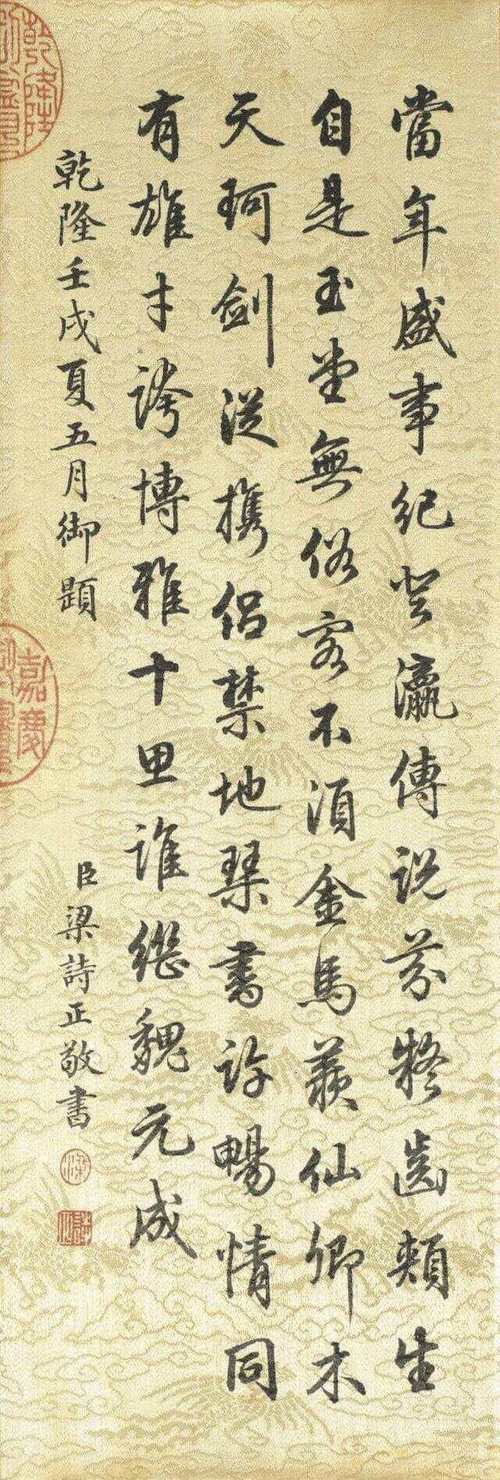 當年盛事紀登瀛傳説芬凝齒頰生
自是玉堂無俗客不須金馬羨仙卿木
天珂劍從携侶禁地琹書許暢情同
有雄才誇博雅十思誰継魏元成
乾隆壬戌夏五月御題
臣梁詩正敬書
乾隆
嘉慶